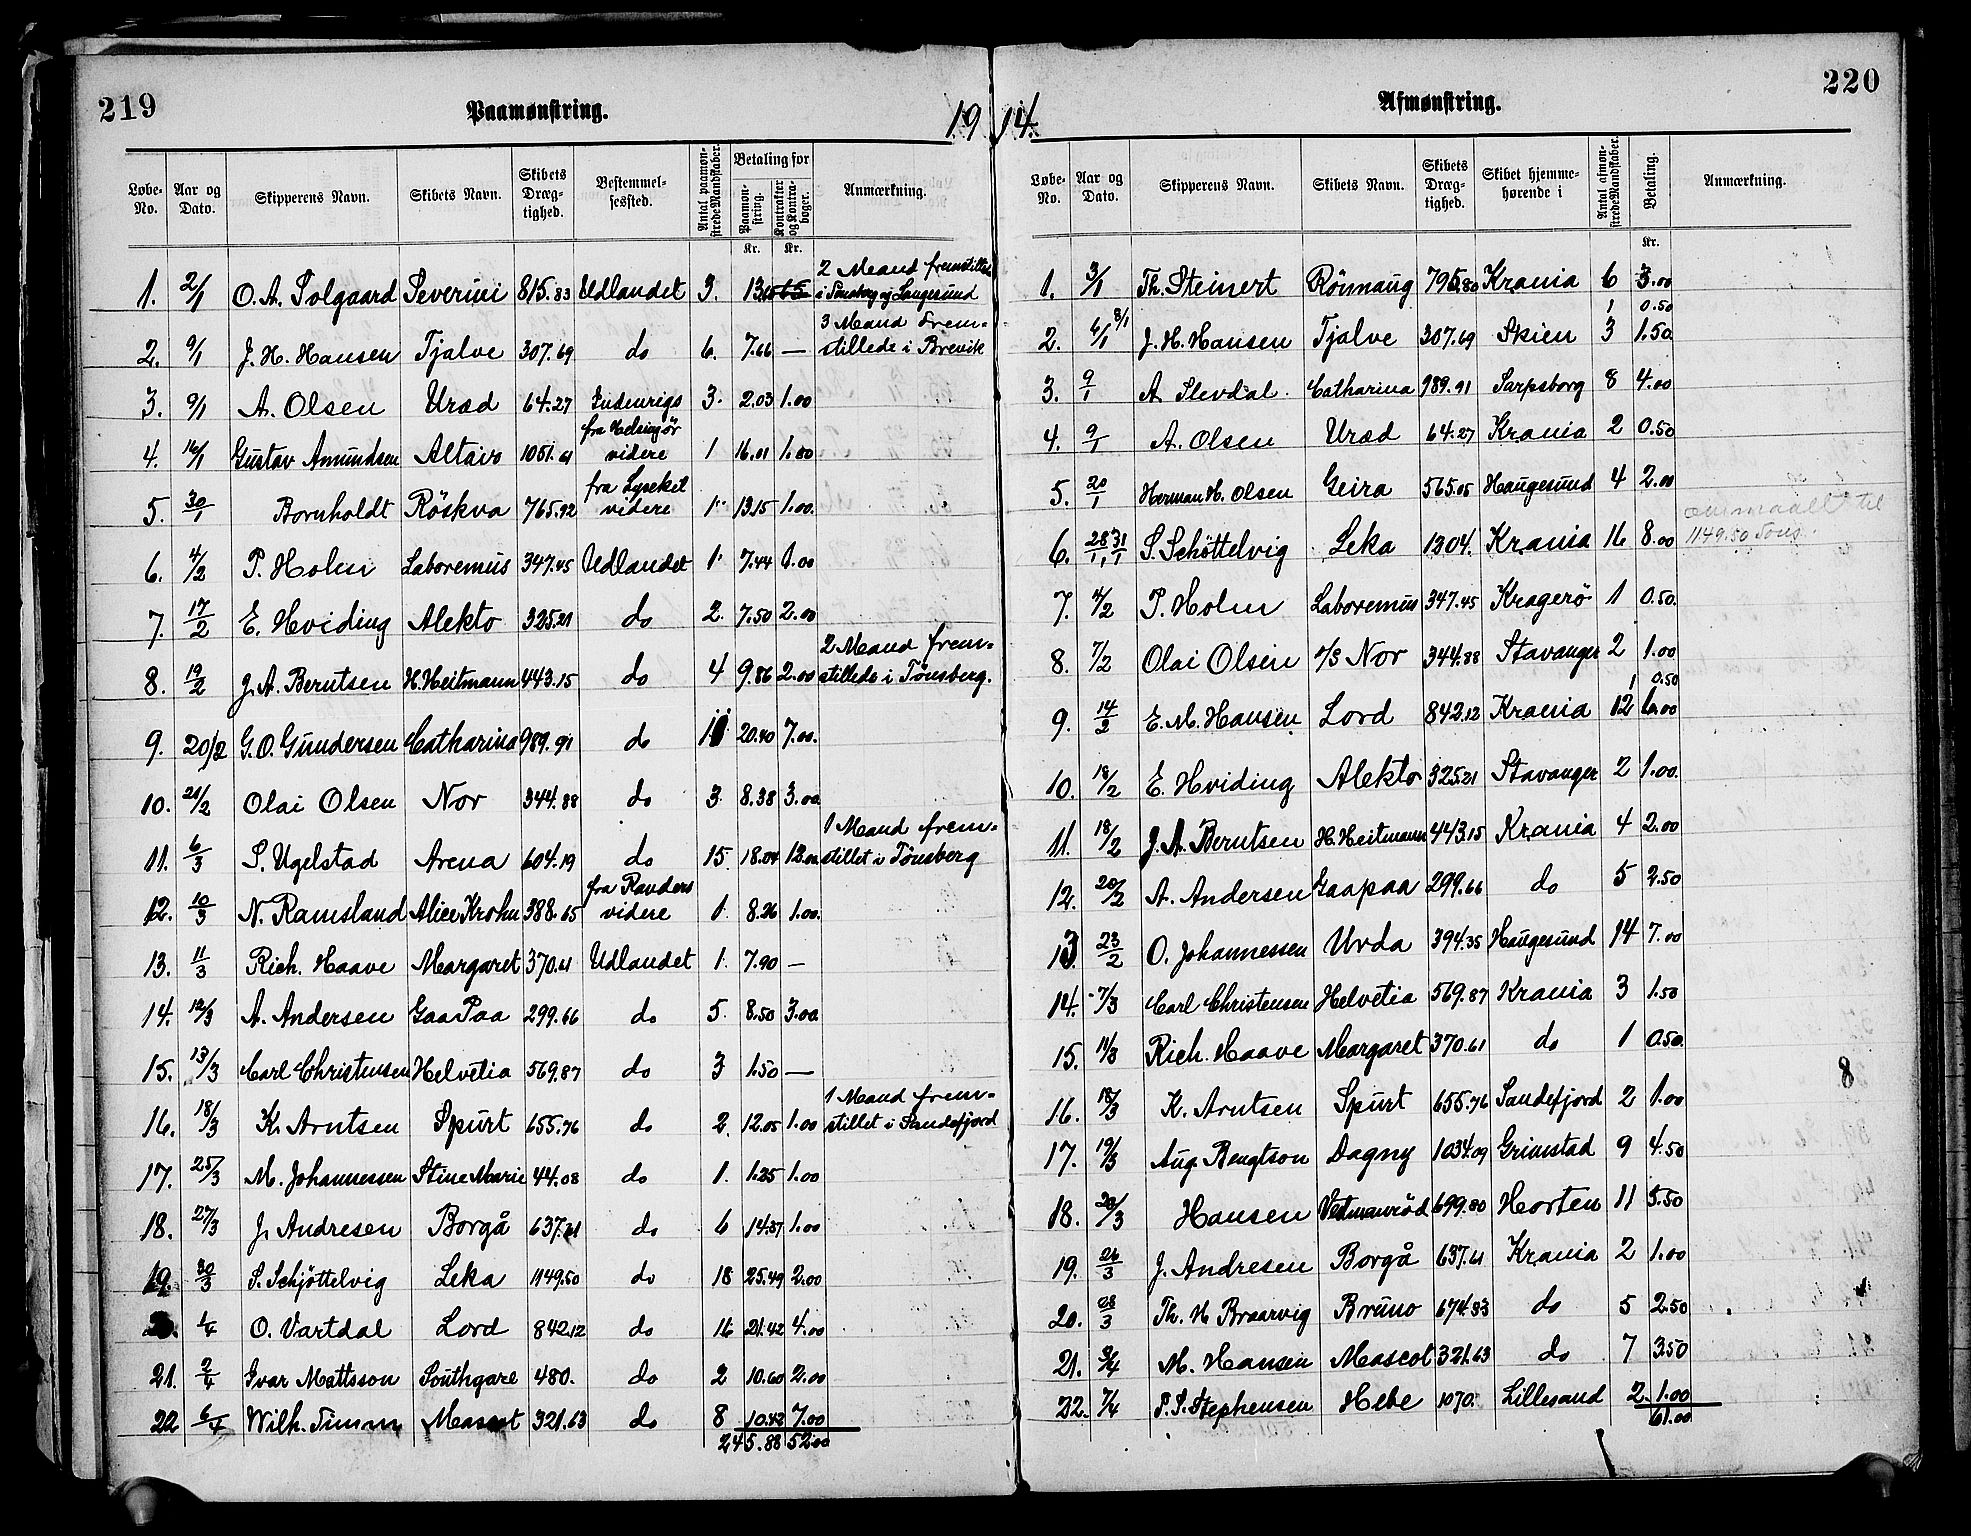 219
Paamønstring.
19
Løbe-No. Aar og Dato. Skipperens Navn. Skibets Navn. Skibets Dræg-tighed. Bestemmel-sessted. Antal paamøn-strede Mandskaber. Betaling for Paamøn-string. Kr. Kontrakter og Kontra-bøger. Kr. Anmærkning.
1. 2/1 O. A. Solgaard Severini 815.83 Udlandet 3. 2 Mand fremstillet i Tønsberg og Langesund
2. 9/1 J. H. Hansen Tjalve 307.69 do 6. 7.66 — 3 Mand frem-stillede i Brevik
3. 9/1 A. Olsen Uræd 64.27 Indenrigs 3. 2.03 1.00
4. 16/1 Gustav Amundsen Altair 1051.61 fra Helsingør videre 1 16.01 1.00
5. 30/1 Bornholdt Röskva 765.92 fra Lysekil videre 1. 13.15 1.00.
6. 4/2 P. Holm Laboremus 347.45 Udlandet 1. 7.44 1.00
7. 17/2 E. Hviding Alekto 325.21 do 2. 7.50 2.00
8. 19/2 J. A. Berntsen H. Heitmann 443.15 do 4 9.86 2.00 2 Mand frem-stillede i Tønsberg.
9. 20/2 G. O. Gundersen Catharina 989.91 do 20.40 7.00.
10. 21/2 Olai Olsen Nor 344.88 do 3. 8.38 3.00.
11. 6/3 S. Ugelstad Arena 604.19 do 15. 18.04 13.00 1 Mand frem-stillet i Tønsberg
12. 10/3 N. Ramsland Alice Krohn 388.65 fra Randers videre 1. 8.26 1.00.
13. 11/3 Rich. Haave Margaret 370.61 Udlandet 1. 7.90 —
14. 12/3 A. Andersen GaaPaa 299.66 do 5. 8.50 3.00.
15. 13/3 Carl Christensen Helvetia 569.87 do 3 1.50 —
16. 18/3 K. Arntsen Spurt 655.76 do 2. 12.05 1.00 1 Mand frem-stillet i Sandefjord
17. 25/3 M. Johannessen Stine Marie 44.08 do 1. 1.25 1.00
18. 27/3 J. Andresen Borgå 637.61 do 6 14.37 1.00
19. 30/3 S. Schjöttelvig Leka 1149.50 do 18 25.49 2.00
20. 1/4 O. Vartdal Lord 842.12 do 16 21.42 4.00
21. 2/4 Ivar Mattsson Southgare 480. do 2 10.60 2.00
22 6/4 Wilh. Timm Mascot 321.63 do 8 10.43 7.00
245.88 52.00
220
Afmønstring.
14.
Løbe-No. Aar og Dato. Skipperens Navn. Skibets Navn. Skibets Dræg-tighed. Skibet hjemme-hørende i Antal afmøn-strede Mandskaber. Betaling. Kr. Anmærkning.
1. 3/1 Th. Steinert Rönnaug 795.80 Krania 6 3.00
1 0.50
2. 6/1 8/1 J. H. Hansen Tjalve 307.69 Skien 3 1.50
3. 9/1 A. Slevdal. Catharina 989.91 Sarpsborg 8 4.00
4. 9/1 A. Olsen Uræd 64.27 Krania 2 0.50
5. 20/1 Herman H. Olsen Geira 565.05 Haugesund 4 2.00
6. 28/1, 31/1 S. Schöttelvig Leka 1304. Krania 16 8.00 ommaalt til 1149.50 Tons.
7. 4/2 P. Holm Laboremus 347.45 Kragerö 1 0.50.
8. 7/2 Olai Olsen s/s Nor 344.88 Stavanger 2 1.00
1 0.50
9. 14/2 E. M. Hansen Lord 842.12 Krania 12 6.00
10. 18/2 E. Hviding Alekto 325.21 Stavanger 2 1.00.
11. 18/2 J. A. Berntsen H. Heitmann 443.15 Krania 4 2.00
12. 20/2 A. Andersen Gaapaa 299.66 do 5 2.50
13. 23/2 O. Johannessen Urda 394.35 Haugesund 14 7.00
14. 7/3 Carl Christensen Helvetia 569.87 Krania 3 1.50
15. 11/3 Rich. Haave Margaret 370.61 do 1 0.50.
16. 18/3 K. Arntsen Spurt 655.76 Sandefjord 2 1.00
8
17. 19/3 Aug. Bengtson Dagny 1034.09 Grimstad 9 4.50
18. 20/3 Hansen 699.80 Horten 11 5.50
19. 26/3 J. Andresen Borgå 637.61 Krania 2 1.00
20. 28/3 Th. H Braarvig Bruno 674.83 do 5 2.50
21. 3/4 M. Hansen Mascot 321.63 do 7 3.50
22. 7/4 P. S. Stephensen Hebe 1070. Lillesand 2. 1.00
61.00